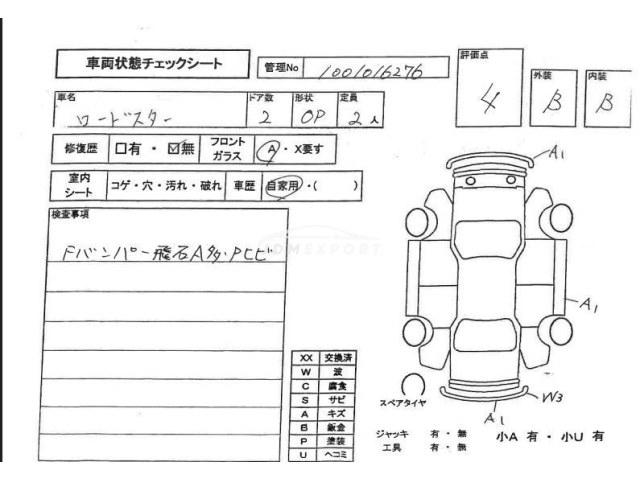 車両状態チェックシート
管理No 1001016276
評価点 4
外装 B
内装 B
車名 ロードスター
ドア数 2
形状 OP
定員 2人
修復歴 □有・☑無
フロントガラス A・X要す
室内シート コゲ・穴・汚れ・破れ
車歴 自家用・( )
検査事項
Fバンパー飛石A多・Pヒビ
JDMEXPORT
A1
A1
W3
A1
XX 交換済
W 波
C 腐食
S サビ
A キズ
B 鈑金
P 塗装
U ヘコミ
スペアタイヤ
ジャッキ 有・無
工具 有・無
小A 有・小U 有